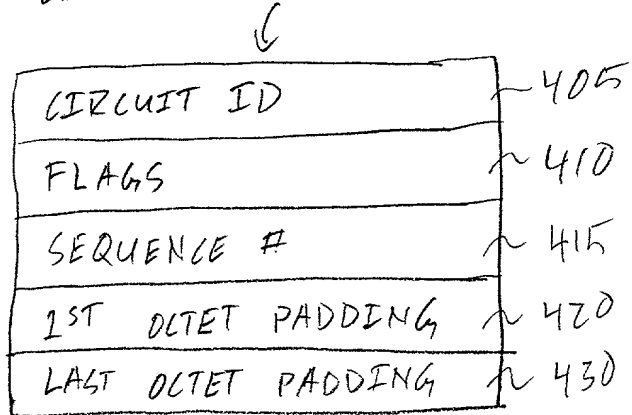 CIRCUIT ID 405
FLAGS 410
SEQUENCE # 415
1ST OCTET PADDING 420
LAST OCTET PADDING 430